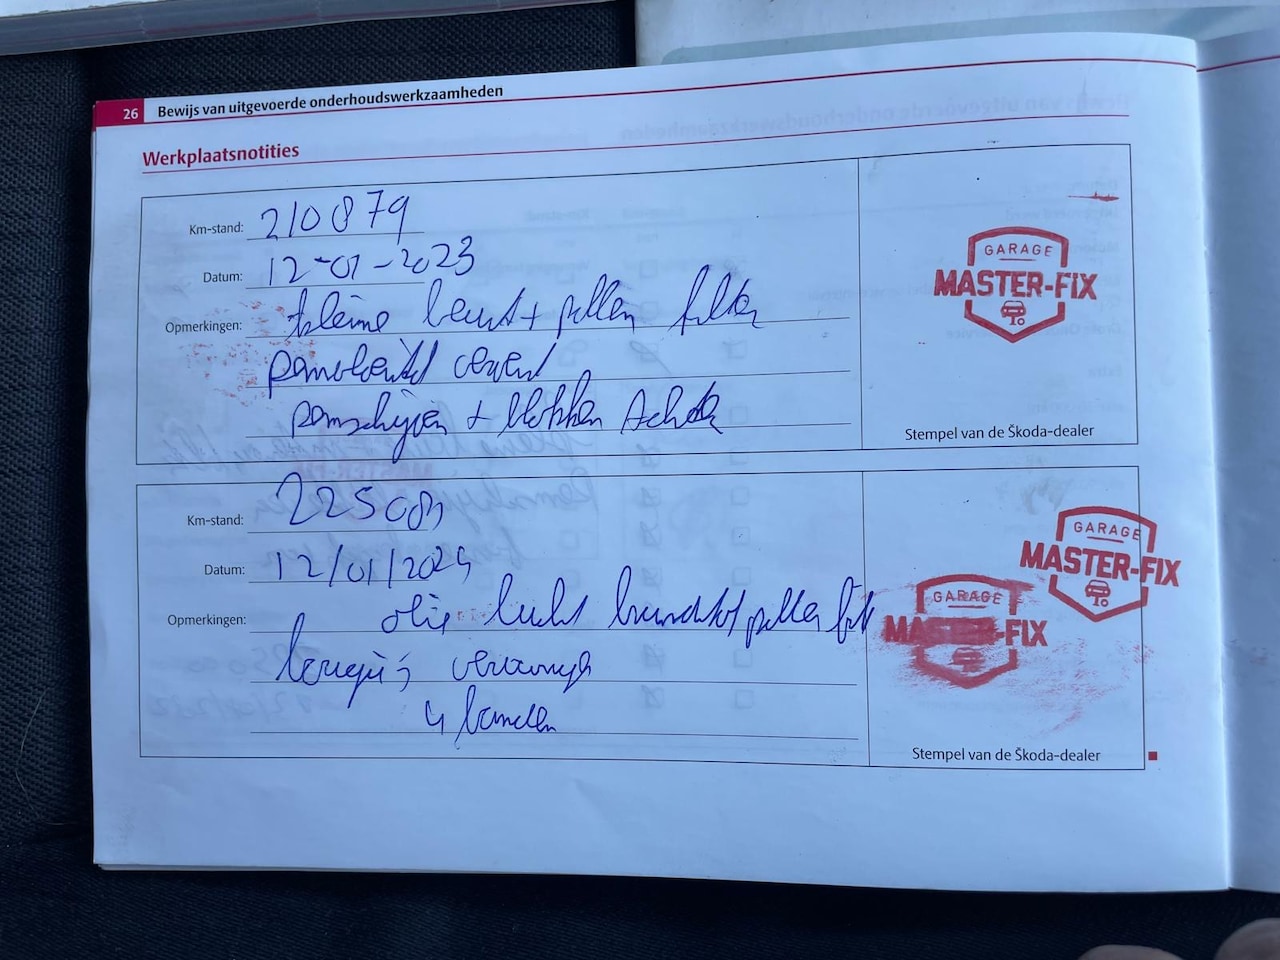 26 Bewijs van uitgevoerde onderhoudswerkzaamheden
Werkplaatsnotities
Km-stand: 210879
Datum: 12-01-2023
Opmerkingen: kleine beurt + pollen filter
remvloeistof ververst
remschijven + blokken Achter
GARAGE
MASTER-FIX
Stempel van de Škoda-dealer
Km-stand:
Datum: 12/01/2024
Opmerkingen: olie lucht brandstof pollen filt
vervangen
4 banden
GARAGE
MASTER-FIX
GARAGE
MASTER-FIX
Stempel van de Škoda-dealer